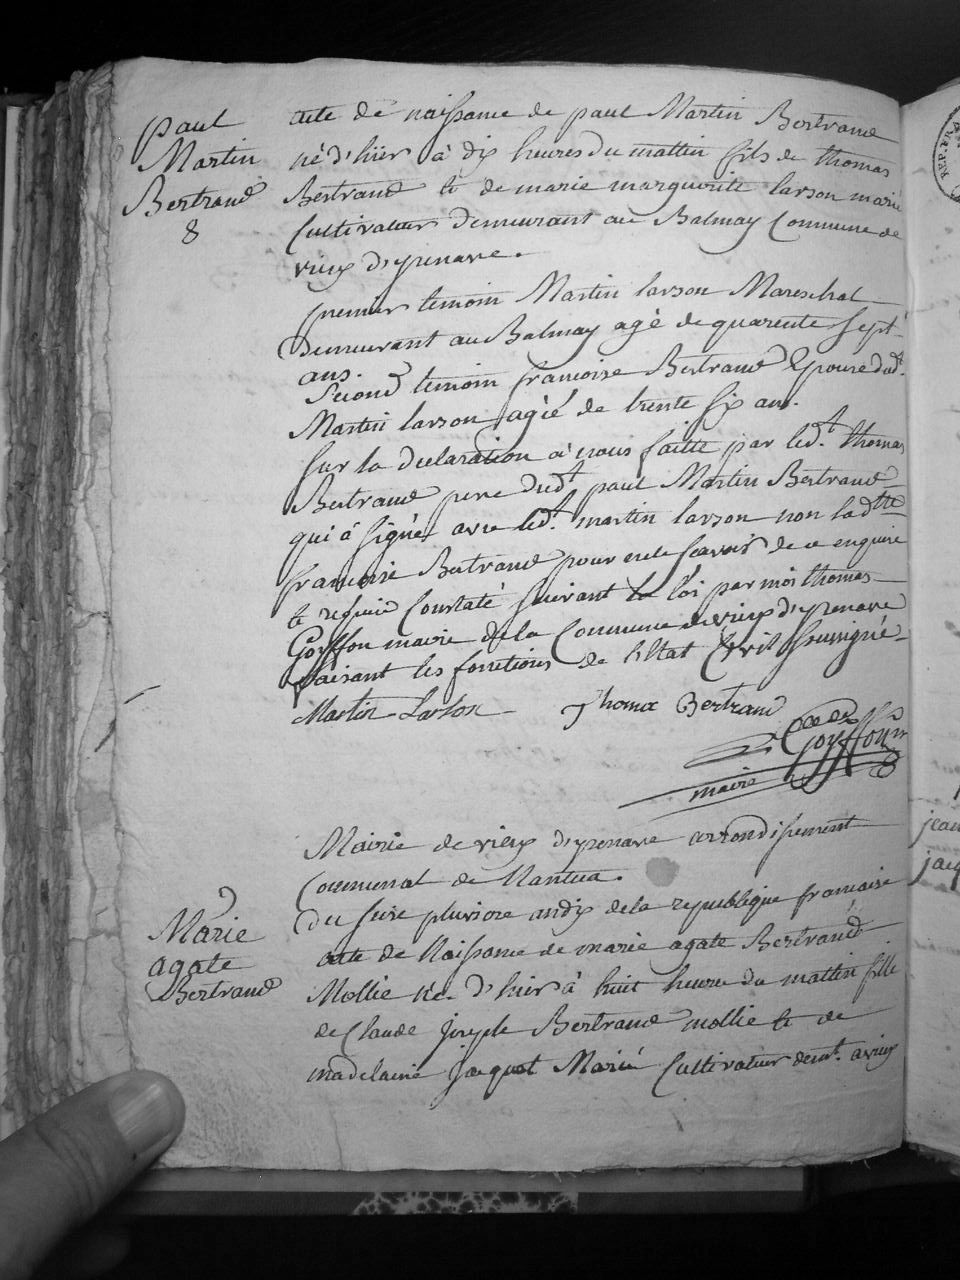 paul
Martin
Bertrand
8
acte de naissance de paul Martin Bertrand
né d'hier à dix heures du mattin fils de thomas
Bertrand et de marie marguerite larson marié
Cultivateur demeurant au Balmay Commune de
vieux d'yzenave.
premier temoin Martin larson Mareschal
Demeurant au Balmay agé de quarente sept
ans.
Second temoin francoise Bertrand Epouse dudt.
Martin larson agée de trente six ans.
sur la declaration à nous faitte par ledt. thomas
Bertrand pere dudt paul Martin Bertrand
qui à signé avec ledt. martin larson non ladtte
francoise Bertrand pour ne le scavoir de ce enquise
et requise Constaté suivant la loi par moi thomas
Goyffon maire de la Commune de vieux d'yzenave
faisant les fonctions de l'Etat Civil soussigné
Martin Larson Thomas Bertrand
Goyffon
maire
Marie
agate
Bertrand
Mairie de vieux d'yzenave arrondissement
Communal de Nantua.
du seize pluviose an dix de la republique francaise
acte de Naissance de marie agate Bertrand
Mollie née d'hier à huit heure du mattin fille
de Claude joseph Bertrand mollie et de
madelaine jacquet Marié Cultivateur demt. a vieux
jean
jacq